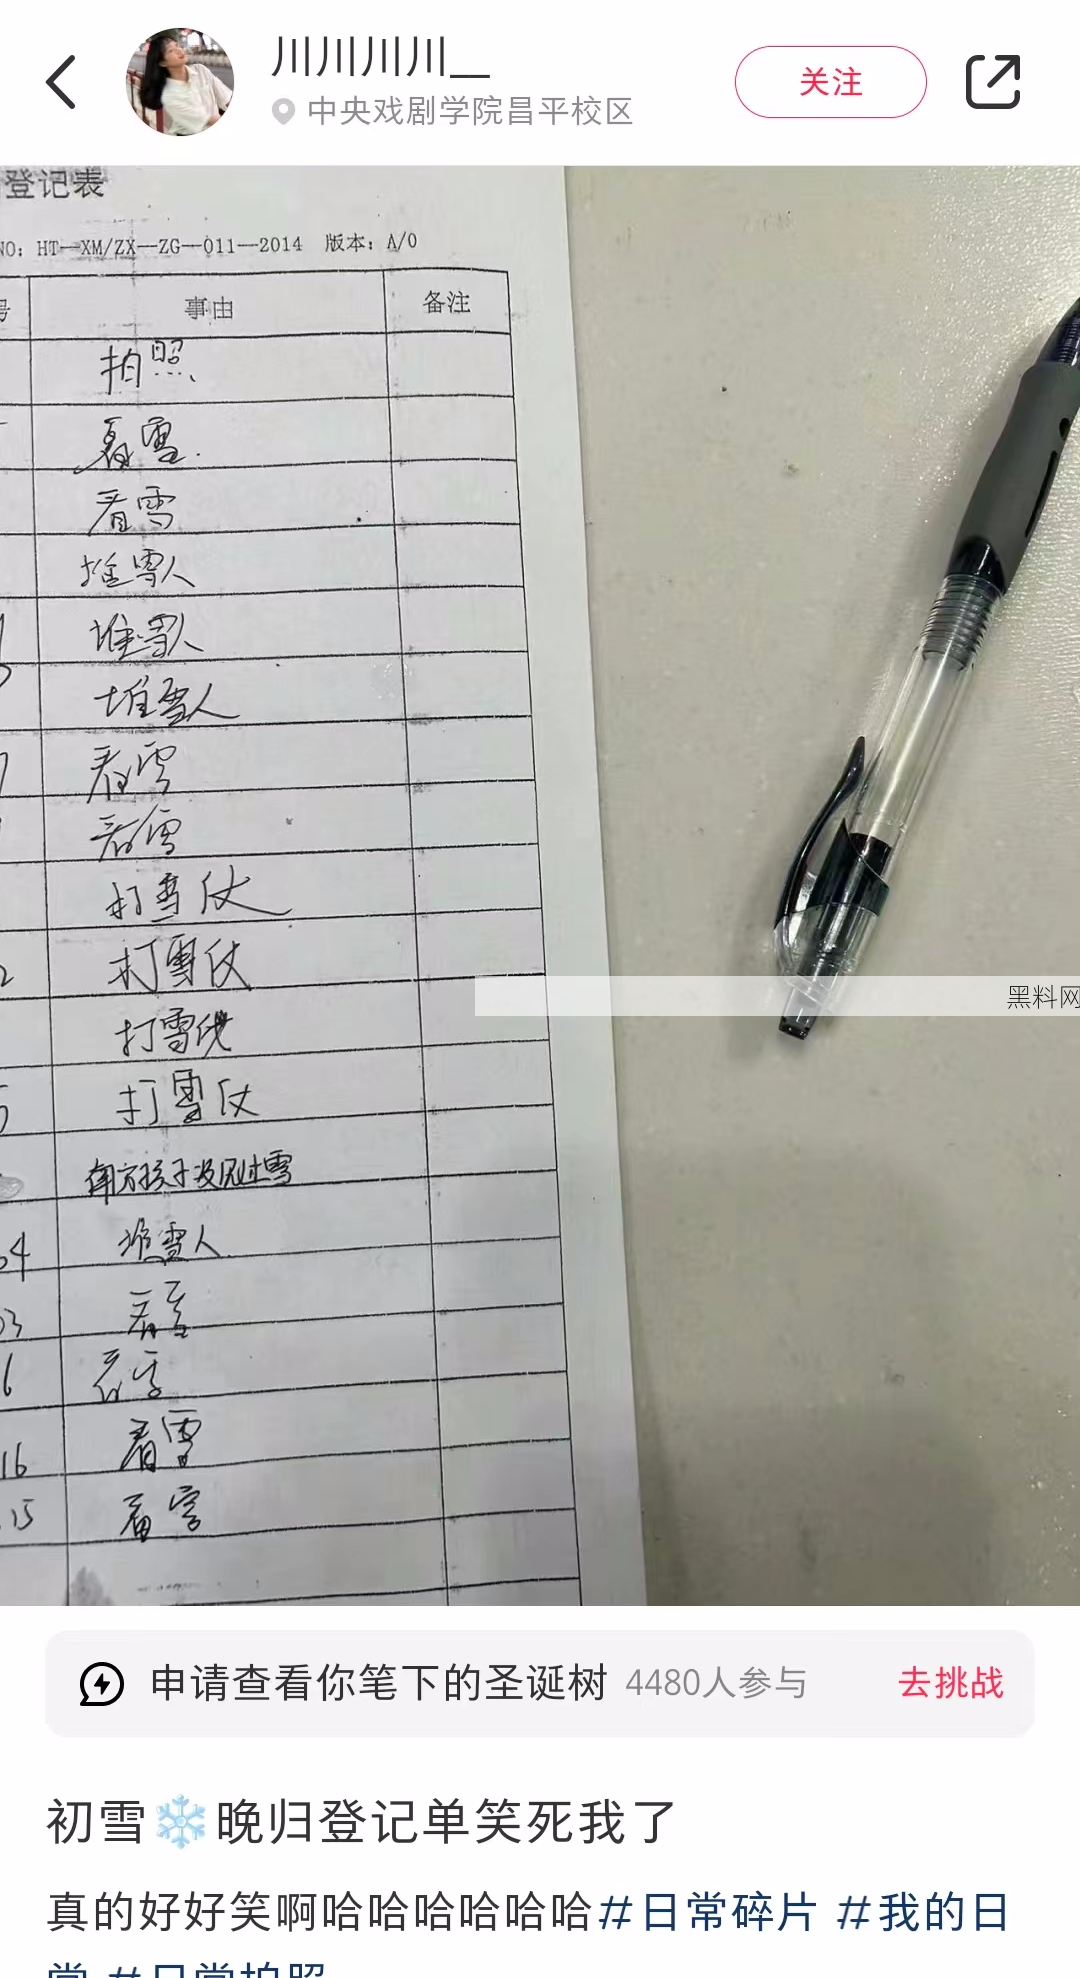 川川川川__
中央戏剧学院昌平校区
关注
登记表
NO: HT—XM/ZX—ZG—011—2014 版本: A/0
号 事由 备注
拍照
看雪.
看雪
堆雪人
堆雪人
堆雪人
看雪
看雪
打雪仗
2 打雪仗
打雪仗
5 打雪仗
南方孩子没见过雪
04 堆雪人
03 看雪
6 看雪
16 看雪
15 看雪
黑料网
申请查看你笔下的圣诞树 4480人参与 去挑战
初雪❄️晚归登记单笑死我了
真的好好笑啊哈哈哈哈哈哈#日常碎片 #我的日
常 #日常拍照